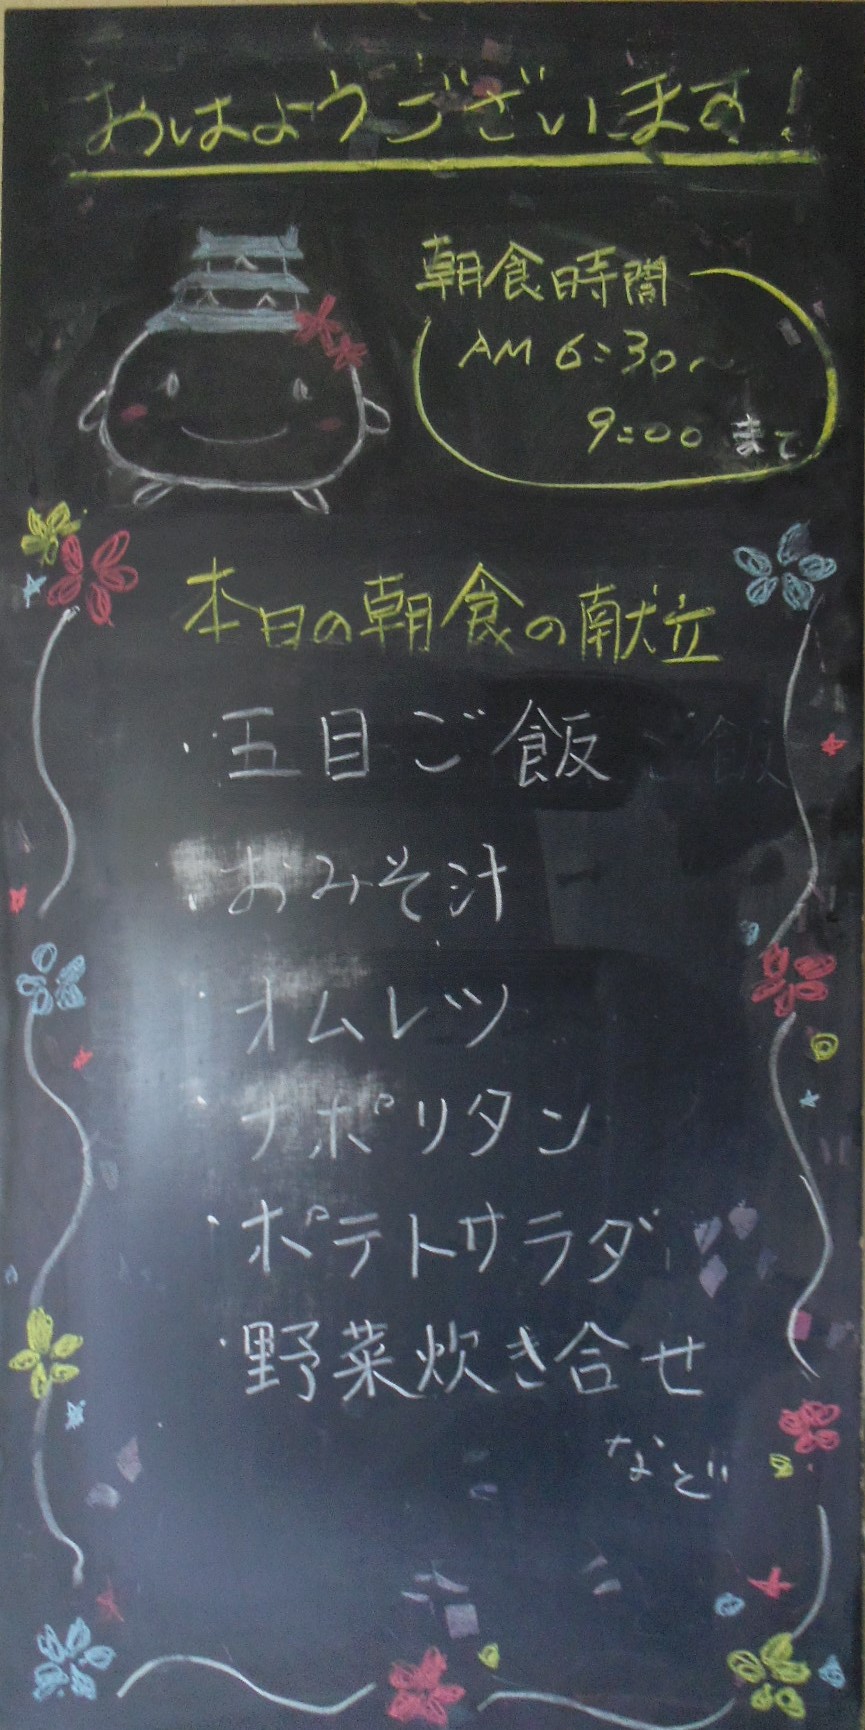 おはようございます!
朝食時間
AM 6:30~
9:00 まで
本日の朝食の献立
・五目ご飯
・おみそ汁
・オムレツ
・ナポリタン
・ポテトサラダ
・野菜炊き合せ
など